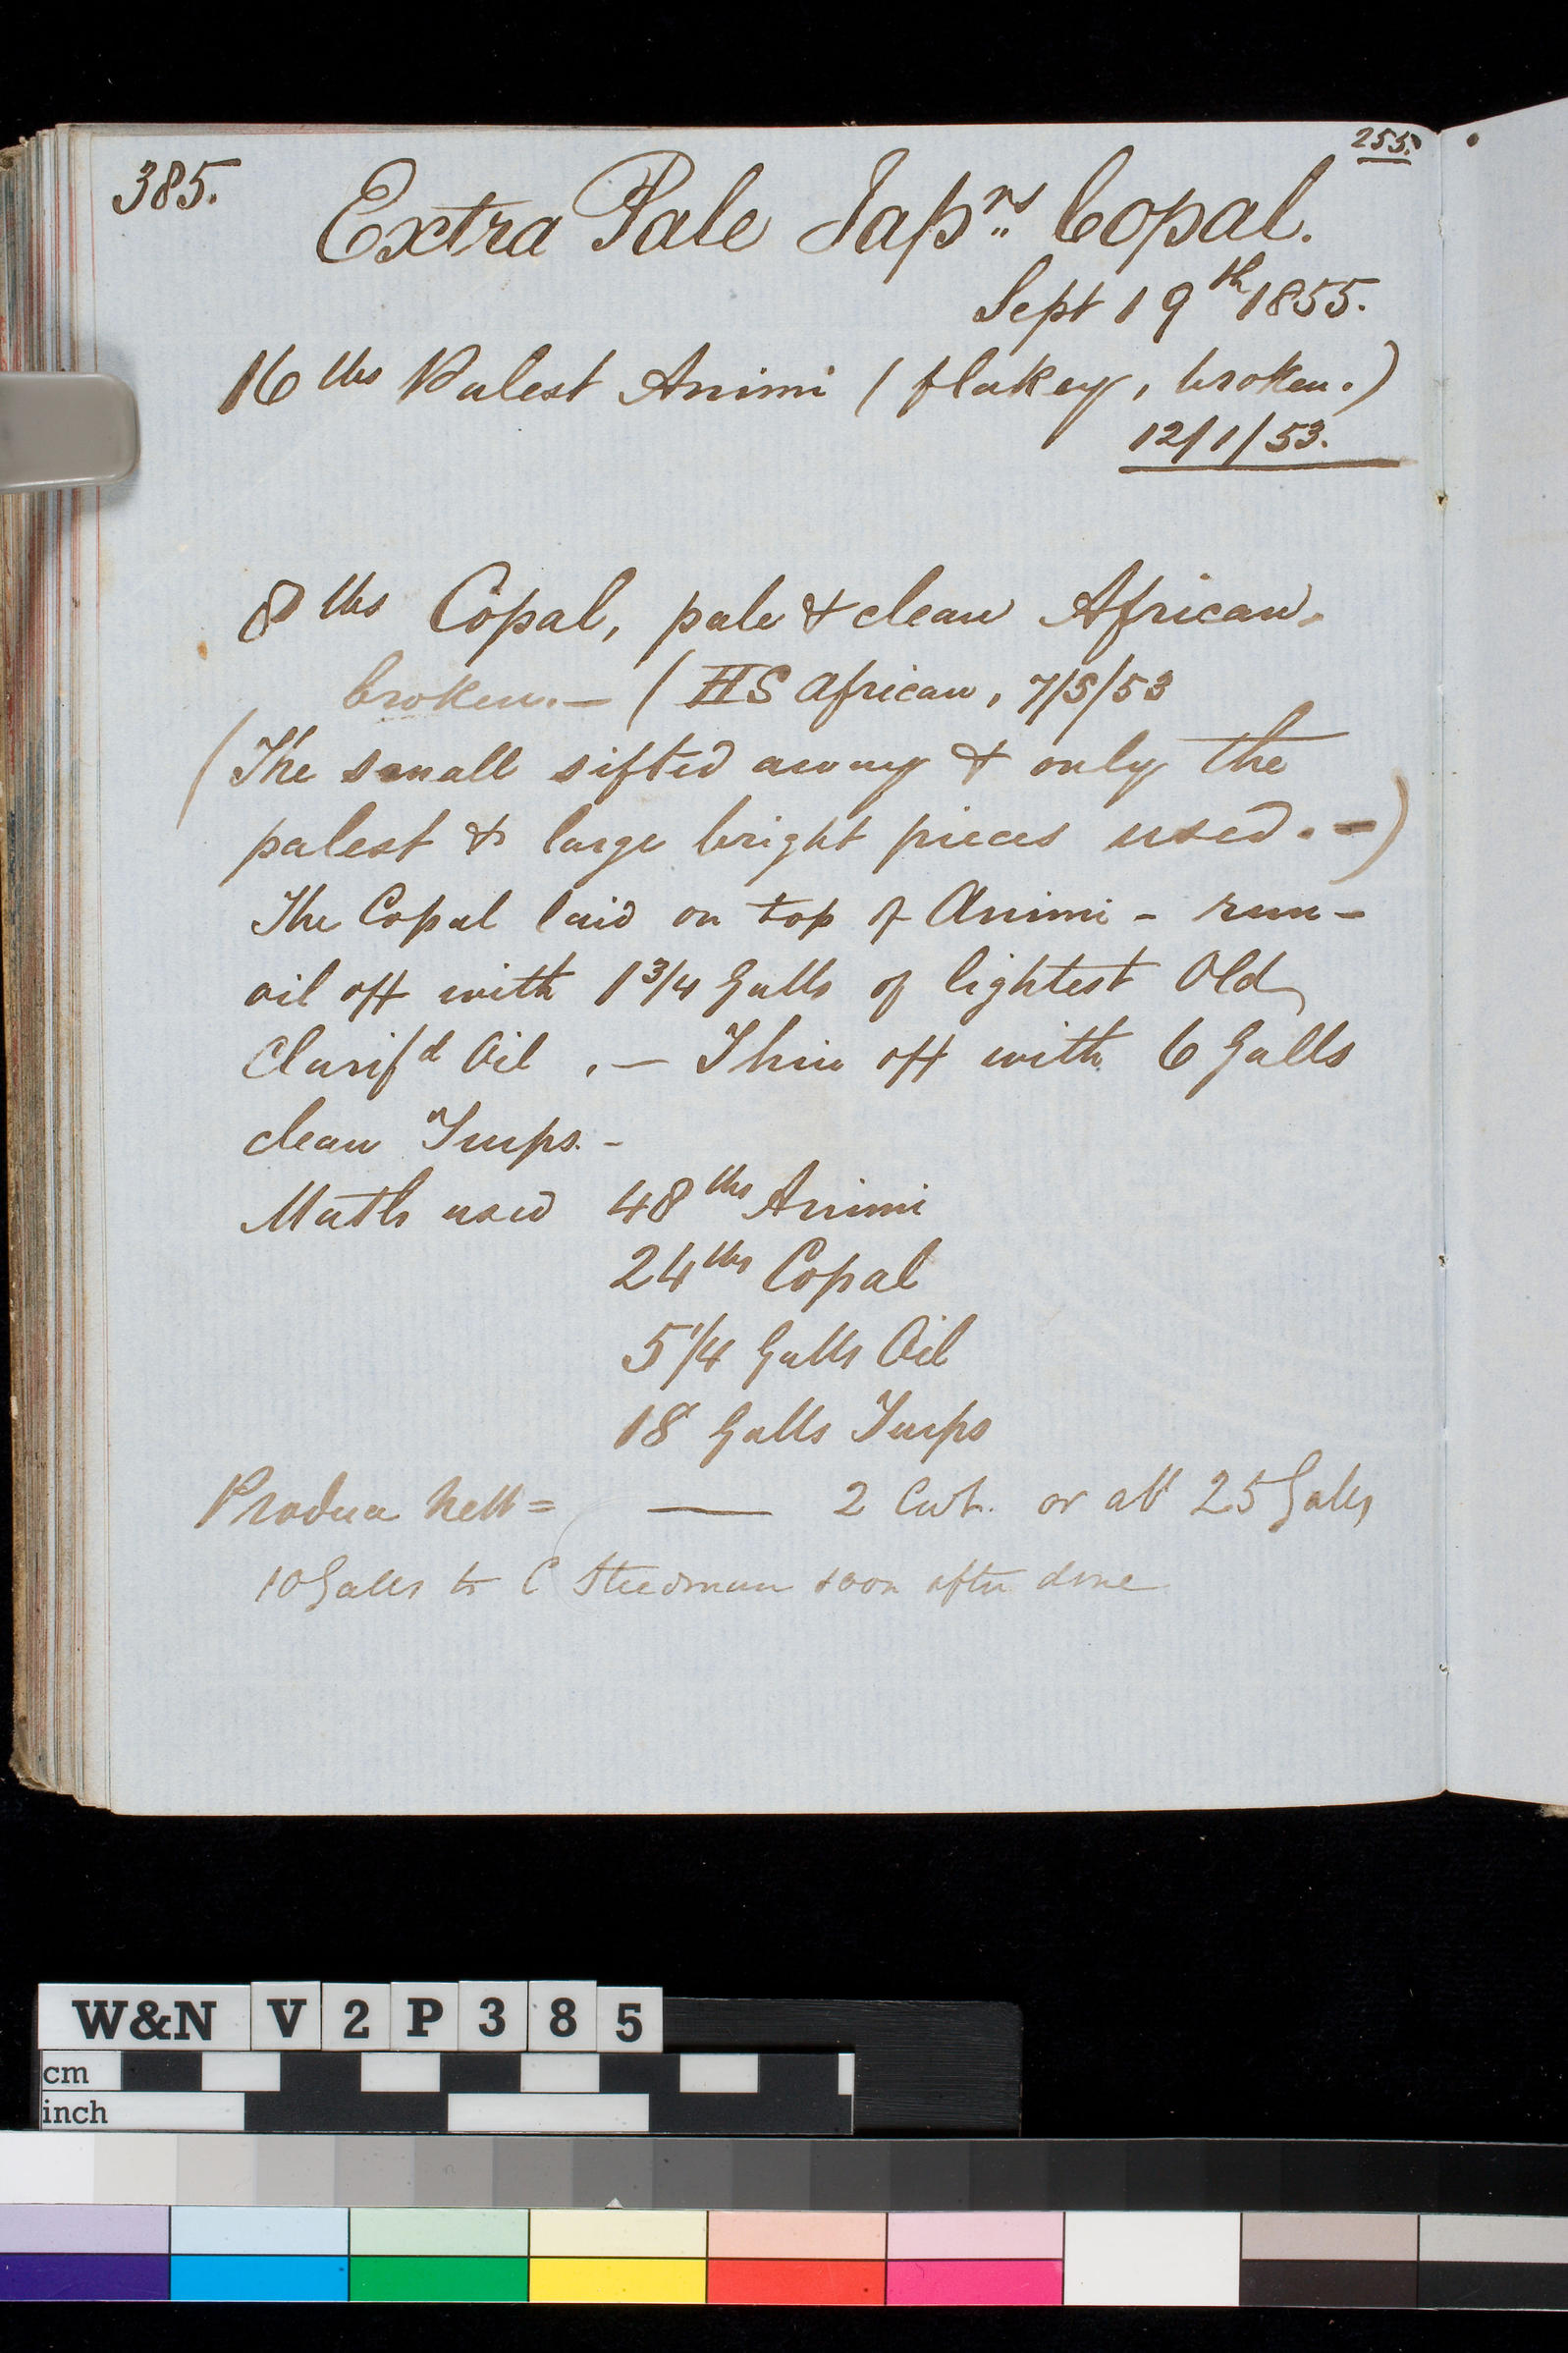 255.
385.
Extra Pale Japrs Copal.
Sept 19th 1855.
16 lbs Palest Animi (flakey, broken.)
12/1/53.
8 lbs Copal, pale & clean African,
broken. — ( HS African, 7/5/53
(The small sifted away & only the
palest & large bright pieces used. -)
The Copal laid on top of Animi - run -
oil off with 1 3/4 Galls of lightest Old
Clarifd Oil . — Thin off with 6 Galls
clean Turps. -
Matls used 48 lbs Animi
24 lbs Copal
5 1/4 Galls Oil
18 Galls Turps
Produce nett = — 2 Cwt. or abt 25 Galls
10 Galls to C Steedman soon after done
W&N V2P385
cm
inch